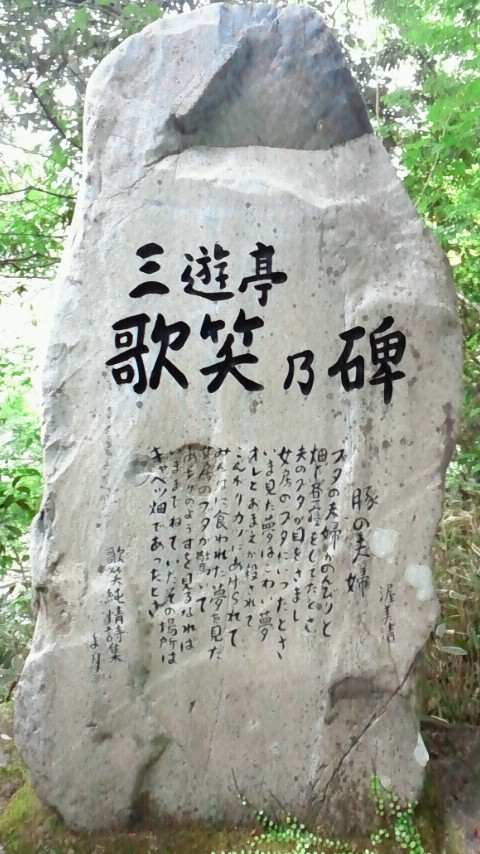 三遊亭
歌笑乃碑
豚の夫婦
渥美清
ブタの夫婦がのんびりと
畑で昼寝をしてたとさ
夫のブタが目をさまし
女房のブタにいったとさ
いま見た夢はこわい夢
オレとおまえが殺されて
こんがりカツにあげられて
みんなに食われた夢を見た
女房のブタが驚いて
あたりのようすを見るなれば
いままでねていたその場所は
キャベツ畑であったとさ
歌笑純情詩集
より